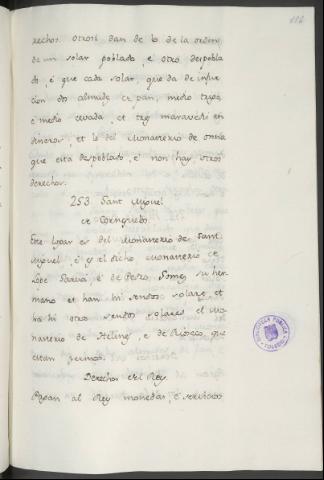 116
rechos. otrosi dan de lo de la orden
de un solar poblado, e otro despobla
do, e que cada solar, que da de infur
cion dos almudes ce pan, medio trigo
e medio cevada, et tres maravedis en
dineros, et lo del Monasterio de
que esta despoblado, e non hay otros
derechos.
253 Sant Miguel
de Cornquedo.
Este logar es del Monasterio de Sant
Miguel, e es el dicho Monasterio de
Lope Garcia, e de Pedro Gomez su her
mano et han hi sendos solares, et
ha hi otros sendos solares el Mo
nasterio de, e de Rioseco, que
estan yermos.
Derechos del Rey.
Pagan al Rey monedas, e servicios
BIBLIOTECA PUBLICA
TOLEDO